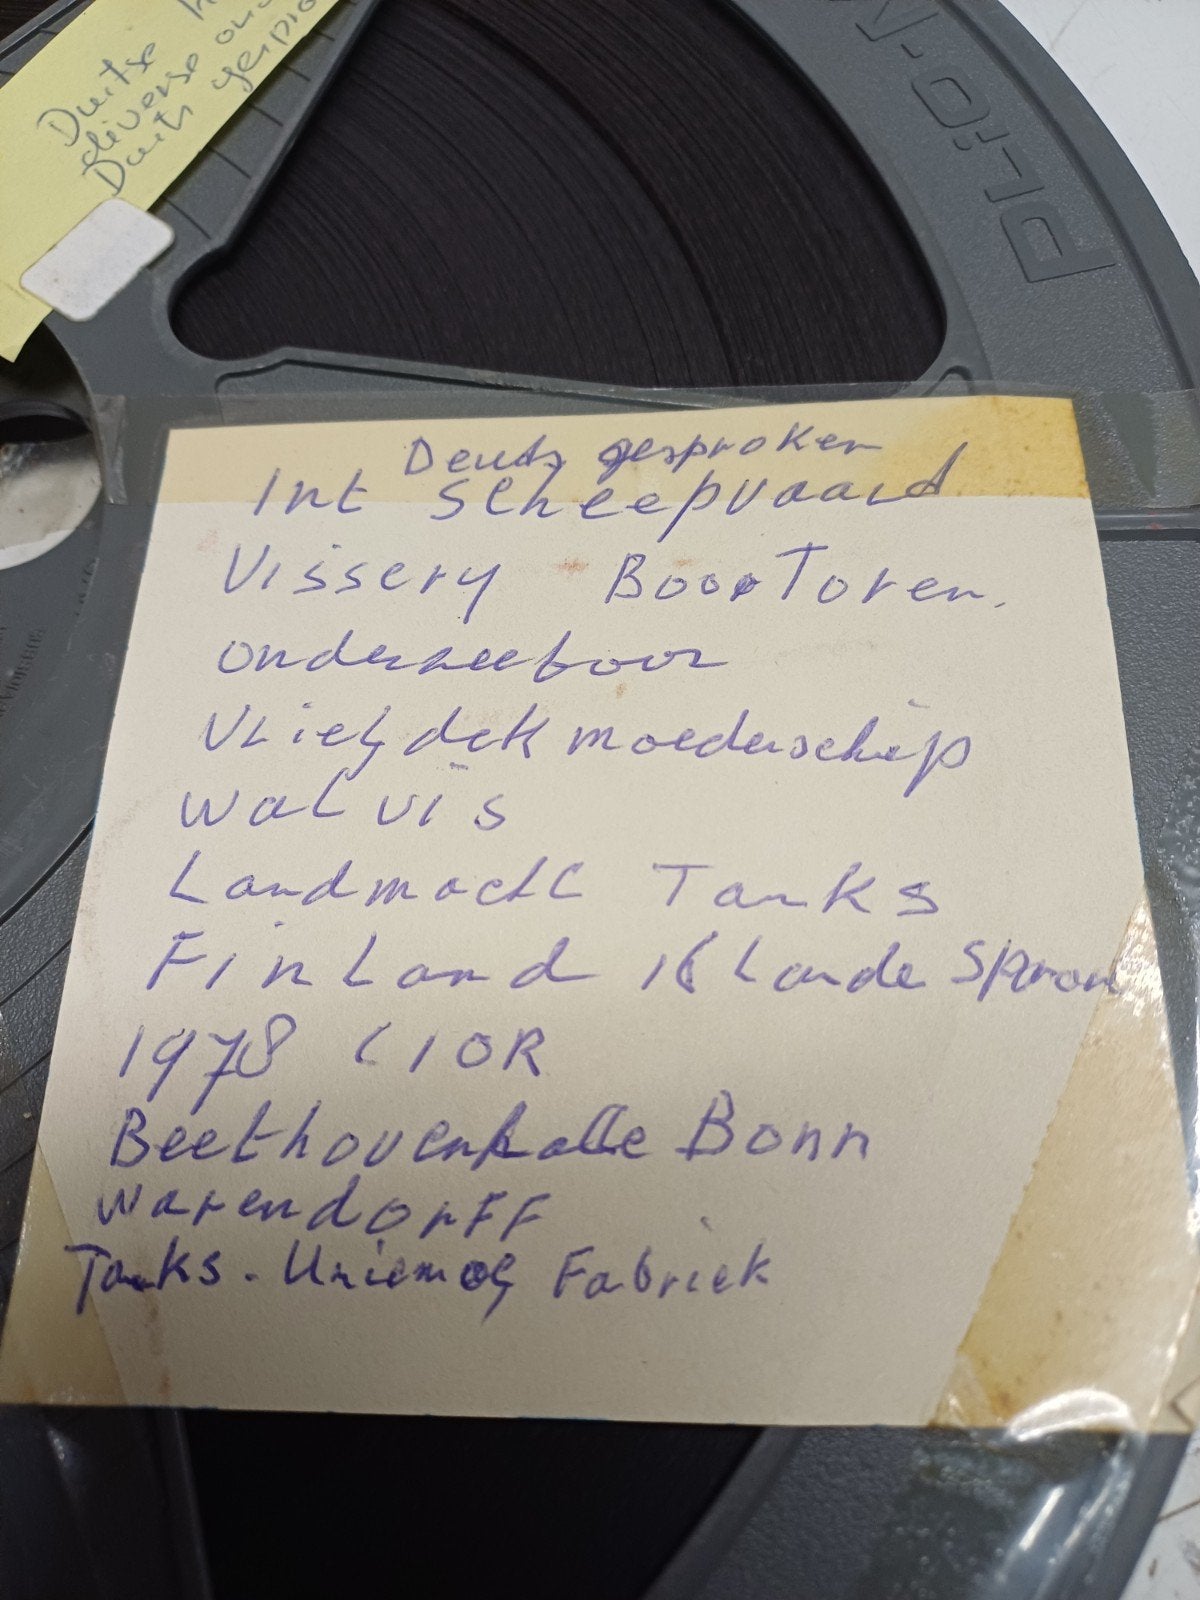 Duitse
diverse
Duits
PLIO-N
Deuts gesproken
Int Scheepvaard
Vissery Boor Toren.
onderzeeboor
Vliegdek moederschip
walvis
Landmacht Tanks
Finland
1978 CIOR
Beethovenhalle Bonn
Warendorff
Tanks. Uniemog Fabriek